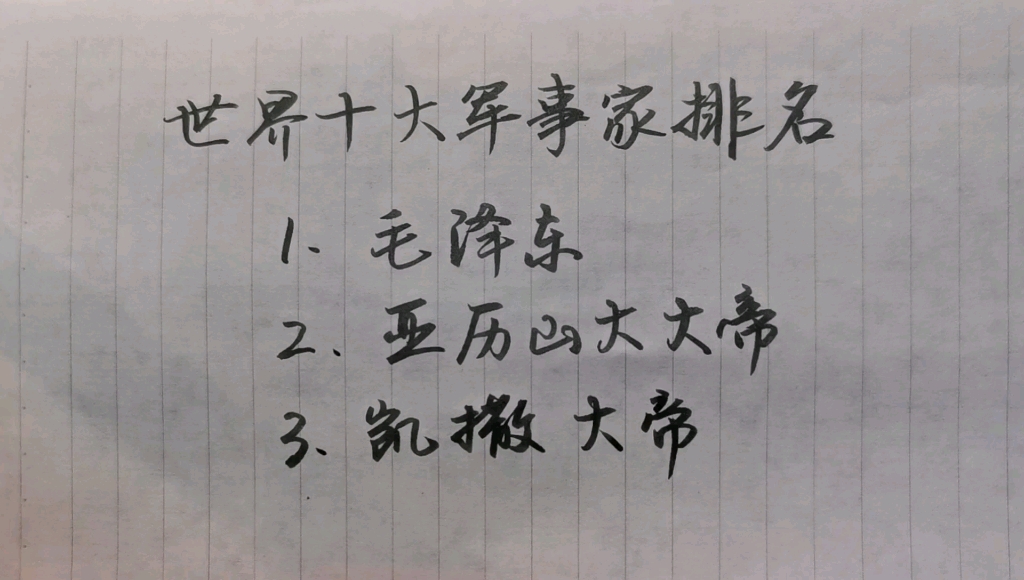 世界十大军事家排名
1. 毛泽东
2. 亚历山大大帝
3. 凯撒大帝